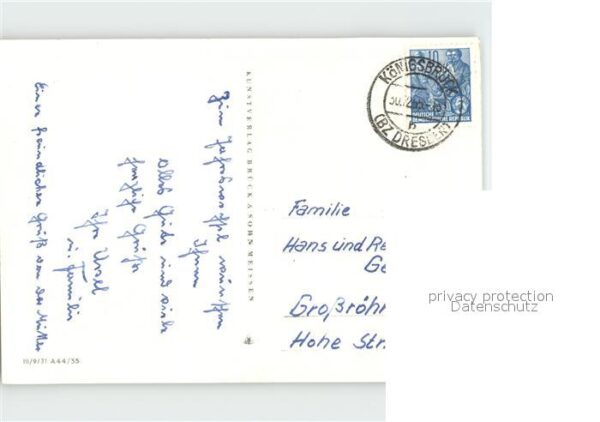 Zum Jahreswechsel wünschen
Ihnen
alles Gute und viele
herzliche Grüße
Ihre Ursel
u. Familie
Einen freundlichen Gruß von der Mutter
KUNSTVERLAG BRÜCK & SOHN MEISSEN
10
KÖNIGSBRÜCK
b
(BZ DRESDEN)
DEUTSCHE
DEMOKRATISCHE REPUBLIK
Familie
Hans und Re
Ge
Großröhr
Hohe Str.
10/9/71 A 44/55
privacy protection
Datenschutz